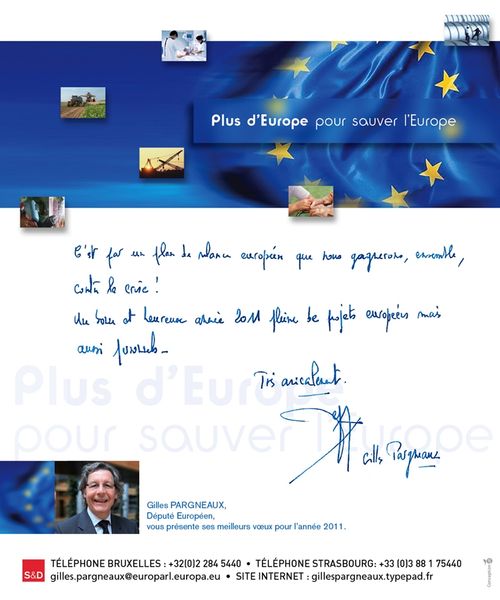 Plus d'Europe pour sauver l'Europe
C'est par un plan de relance européen que nous gagnerons, ensemble,
contre la crise !
Une bonne et heureuse année 2011 pleine de projets européens mais
aussi personnels_
Très amicalement.
Gilles Pargneaux
Plus d'Europe
pour sauver l'Europe
Gilles PARGNEAUX,
Député Européen,
vous présente ses meilleurs vœux pour l'année 2011.
S&D
TÉLÉPHONE BRUXELLES : +32(0)2 284 5440 • TÉLÉPHONE STRASBOURG: +33 (0)3 88 1 75440
gilles.pargneaux@europarl.europa.eu • SITE INTERNET : gillespargneaux.typepad.fr